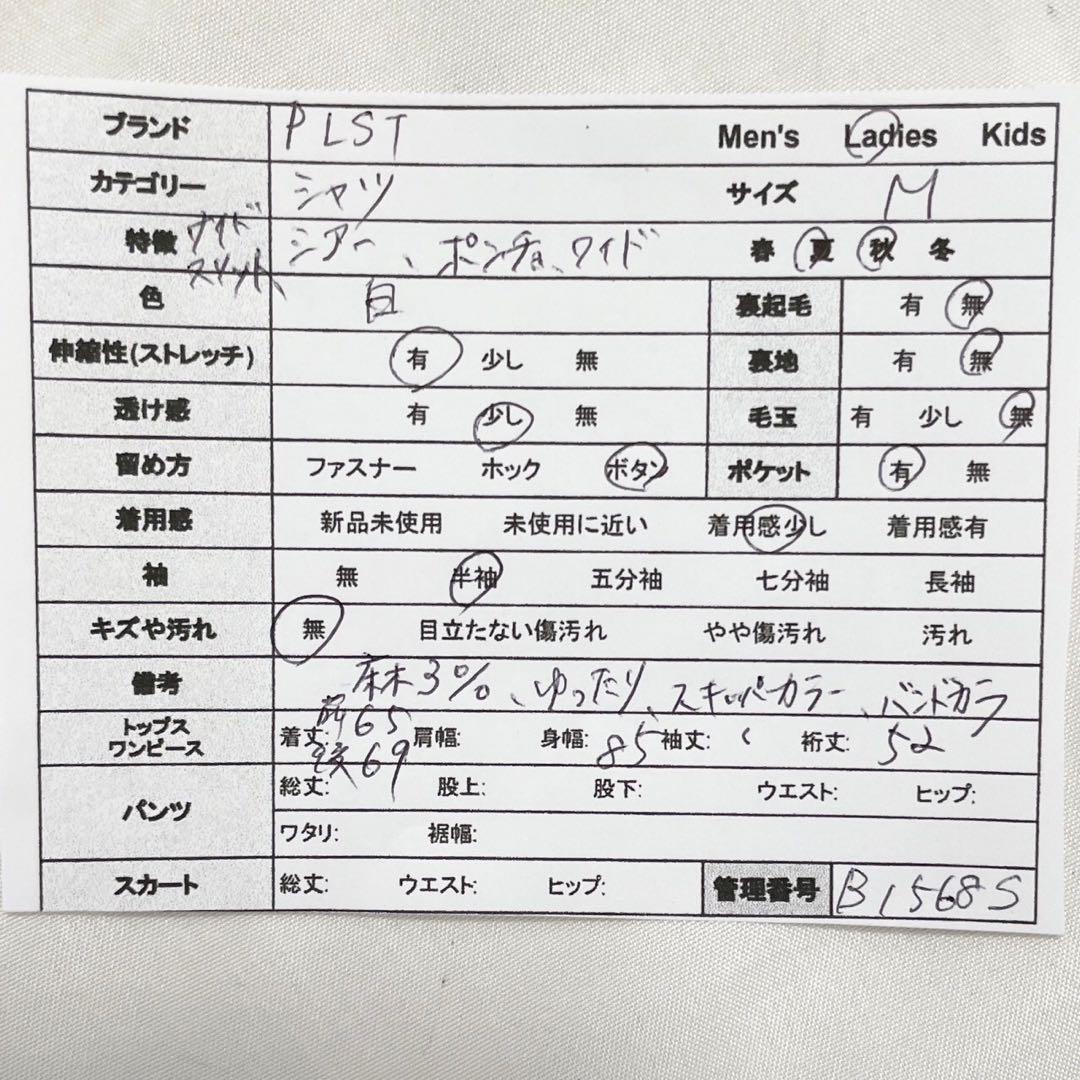 ブランド PLST Men's Ladies Kids
カテゴリー シャツ サイズ M
特徴 サイド シアー、ポンチョ、ワイド 春 夏 秋 冬
スリット、
色 白 裏起毛 有 無
伸縮性(ストレッチ) 有 少し 無 裏地 有 無
透け感 有 少し 無 毛玉 有 少し 無
留め方 ファスナー ホック ボタン ポケット 有 無
着用感 新品未使用 未使用に近い 着用感少し 着用感有
袖 無 半袖 五分袖 七分袖 長袖
キズや汚れ 無 目立たない傷汚れ やや傷汚れ 汚れ
備考 麻3%、ゆったり、スキッパーカラー、バンドカラー
トップス ワンピース 着丈: 前65 後69 肩幅: 身幅: 85 袖丈: 裄丈: 52
パンツ 総丈: 股上: 股下: ウエスト: ヒップ:
ワタリ: 裾幅:
スカート 総丈: ウエスト: ヒップ: 管理番号 B1568S